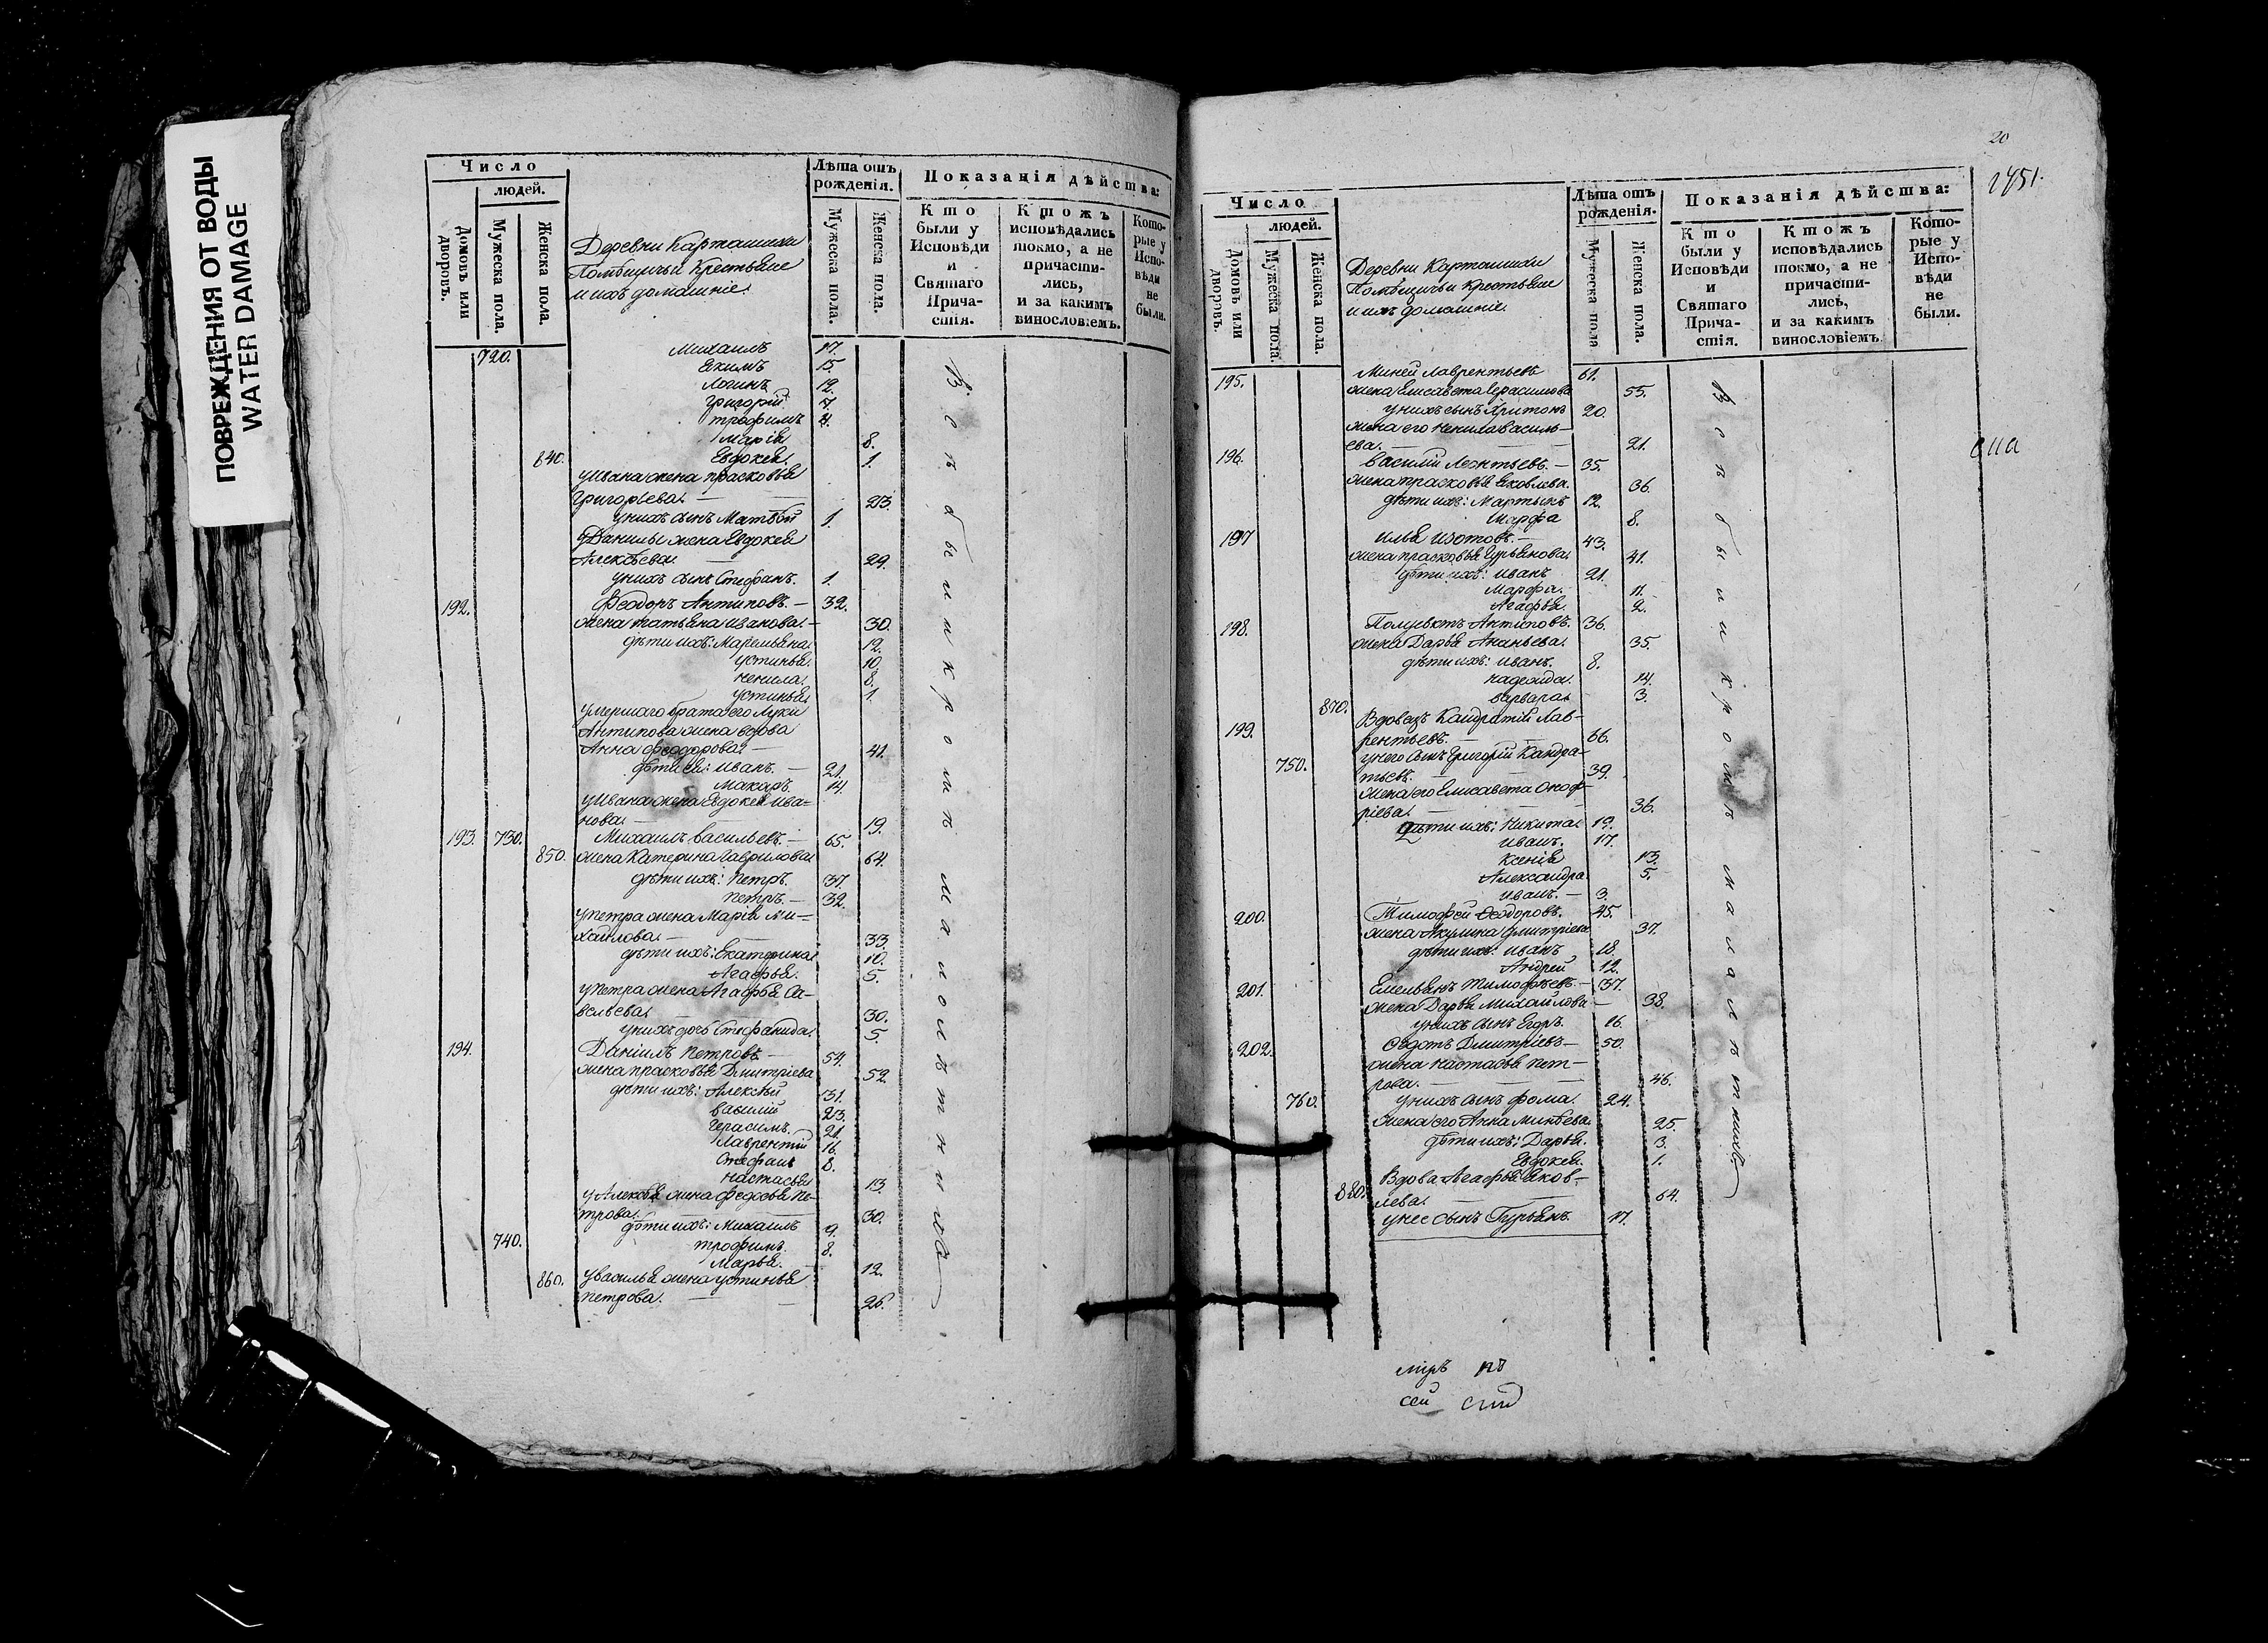 ПОВРЕЖДЕНИЯ ОТ ВОДЫ
WATER DAMAGE
Число
людей.
Домовъ или дворовъ.
Мужеска пола.
Женска пола.
Деревни Карташихи
Помѣщичьи Крестьяне
и ихъ домашніе.
Лѣта отъ рожденія.
Мужеска пола.
Женска пола.
Показанія дѣйства:
Кто были у Исповѣди и Святаго Причастія.
Ктожъ исповѣдались токмо, а не причастились, и за какимъ винословіемъ.
Которые у Исповѣди не были.
720. Михаилъ 17.
Екимъ 15.
Логинъ 12.
Григорій 7.
Трофимъ
Марія 8.
840. Евдокея 1.
у Ивана жена Прасковья
Григорьева. — 23.
у нихъ сынъ Матвѣй 1.
у Данилы жена Евдокея
Алексѣева. — 29.
у нихъ сынъ Стефанъ. 1.
192. Феодоръ Антиповъ. — 32.
жена Татьяна Иванова. — 30.
дѣти ихъ: Маремьяна. 12.
Устинья. 10.
Ненила. 8.
Устинья. 1.
умершаго брата его Луки
Антипова жена вдова
Анна Феодорова. — 41.
дѣти ея: Иванъ. — 21.
Макаръ. 14.
у Ивана жена Евдокея Ива-
нова. — 19.
193. 730. Михаилъ Васильевъ. — 65.
850. жена Катерина Гаврилова 64.
дѣти ихъ: Петръ. 37.
Петръ. — 32.
у Петра жена Марія Ми-
хайлова. — 33.
дѣти ихъ: Екатерина 10.
Агафья. 5.
у Петра жена Агафья Са-
вельева. — 30.
у нихъ дочь Стефанида. 5.
194. Даніилъ Петровъ. — 54.
жена Прасковья Дмитріева 52.
дѣти ихъ: Алексѣй 31.
Василій 23.
Герасимъ. 21.
Лаврентій 16.
Стефанъ 8.
Настасья 13.
у Алексѣя жена Федосья Пе-
трова. — 30.
дѣти ихъ: Михаилъ 9.
740. Трофимъ. 8.
Марья. — 12.
860. у Василья жена Устинья
Петрова. — 26.
Всѣ были кромѣ малолѣтнихъ
20
1451.
Число
людей.
Домовъ или дворовъ.
Мужеска пола.
Женска пола.
Деревни Карташихи
Помѣщичьи Крестьяне
и ихъ домашніе.
Лѣта отъ рожденія.
Мужеска пола
Женска пола.
Показанія дѣйства:
Кто были у Исповѣди и Святаго Причастія.
Ктожъ исповѣдались токмо, а не причастились, и за какимъ винословіемъ.
Которые у Исповѣди не были.
195. Миней Лаврентьевъ 61.
жена Елисавета Герасимова 55.
у нихъ сынъ Харитонъ 20.
жена его Ненила Василь-
ева. — 21.
196. Василій Леонтьевъ. — 35.
жена Прасковья Яковлева. 36.
дѣти ихъ: Мартынъ 12.
Марфа 8.
197 Илья Изотовъ. — 43.
жена Прасковья Гурьянова. 41.
дѣти ихъ: Иванъ 21.
Марфа. 11.
Агафья. 2.
198. Полуектъ Антиповъ. 36.
жена Дарья Ананьева. 35.
дѣти ихъ: Иванъ. 8.
Надежда. 14.
870. Варвара. — 3.
199. Вдовецъ Кандратій Лав-
рентьевъ. — 66.
750. у него сынъ Григорій Кандра-
тьевъ. — 39.
жена его Елисавета Оноф-
ріева. — 36.
дѣти ихъ: Никита 19.
Иванъ. 17.
Ксенія 13.
Александра 5.
Иванъ. — 3.
200. Тимофей Феодоровъ. 45.
жена Акулина Дмитріева 37.
дѣти ихъ: Иванъ 18.
Андрей 12.
201. Емельянъ Тимофеевъ. — 37.
жена Дарья Михайлова — 38.
у нихъ сынъ Егоръ. 16.
202. Федотъ Дмитріевъ — 50.
жена Настасья Пет-
рова. — 46.
760. у нихъ сынъ Фома. 24.
жена его Анна Минеева. 25.
дѣти ихъ: Дарья. 3.
Евдокея. 1.
880. Вдова Агафья Яков-
лева. — 64.
у нее сынъ Гурьянъ. 17.
Всѣ были кромѣ малолѣтнихъ